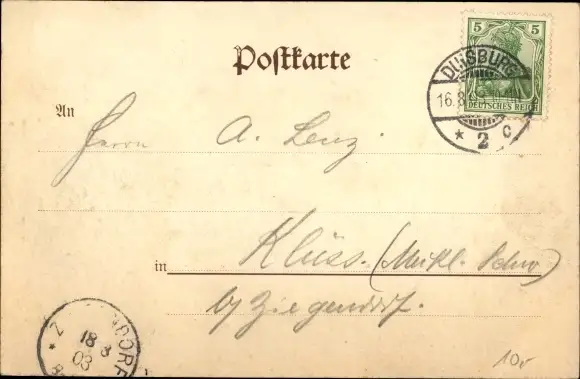 5 5
DEUTSCHES REICH
DUISBURG
16.8.
* 2 c
Postkarte
An
Herrn A. Lenz.
in Klüss. (Meckl. Schw)
by Ziegendorf.
* Z NDORF
18 8
03
10v